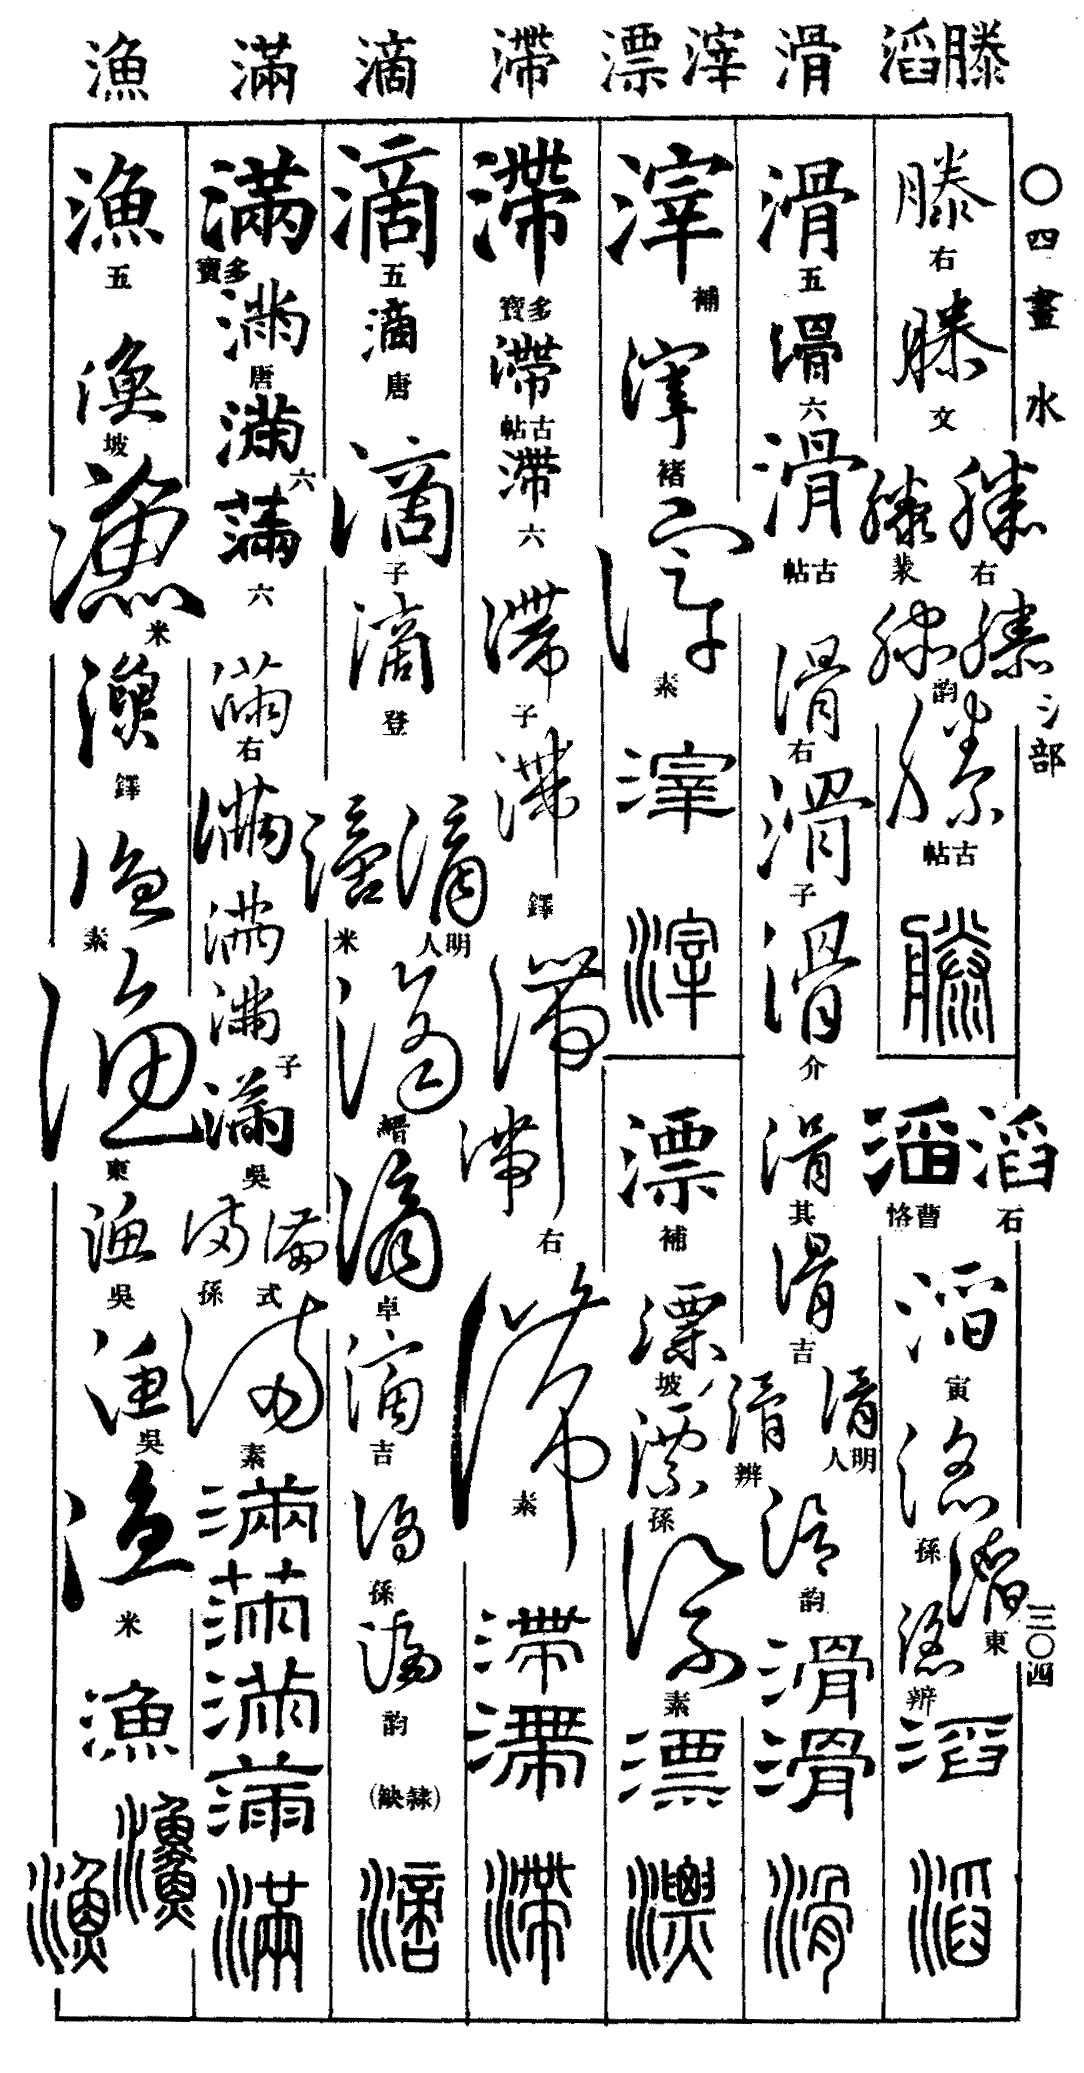 滕滔 滑 滓漂 滯 滴 滿 漁
〇四畫 水 氵部 三〇四
滕右
滕文
滕右 滕裴
滕 滕韵
滕古帖
滕
滔石 滔曹恪
滔寅
滔孫
滔東 滔辨
滔
滔
滑五
滑六
滑古帖
滑右
滑子
滑介
滑其
滑吉
滑明人 滑辨
滑韵
滑
滑
滑
滓補
滓褚
滓素
滓
滓
漂補
漂坡
漂孫
漂素
漂
漂
滯多寶
滯古帖
滯六
滯子
滯鐸
滯
滯右
滯素
滯
滯
滯
滴五
滴唐
滴子
滴登
滴明人 滴米
滴縉
滴卓
滴吉
滴孫
滴韵
(隸缺)
滴
滿多寶
滿唐
滿六
滿六
滿右
滿
滿
滿子
滿吳
滿式 滿孫
滿素
滿
滿
滿
滿
滿
漁五
漁坡
漁米
漁鐸
漁素
漁東
漁吳
漁吳
漁米
漁
漁
漁